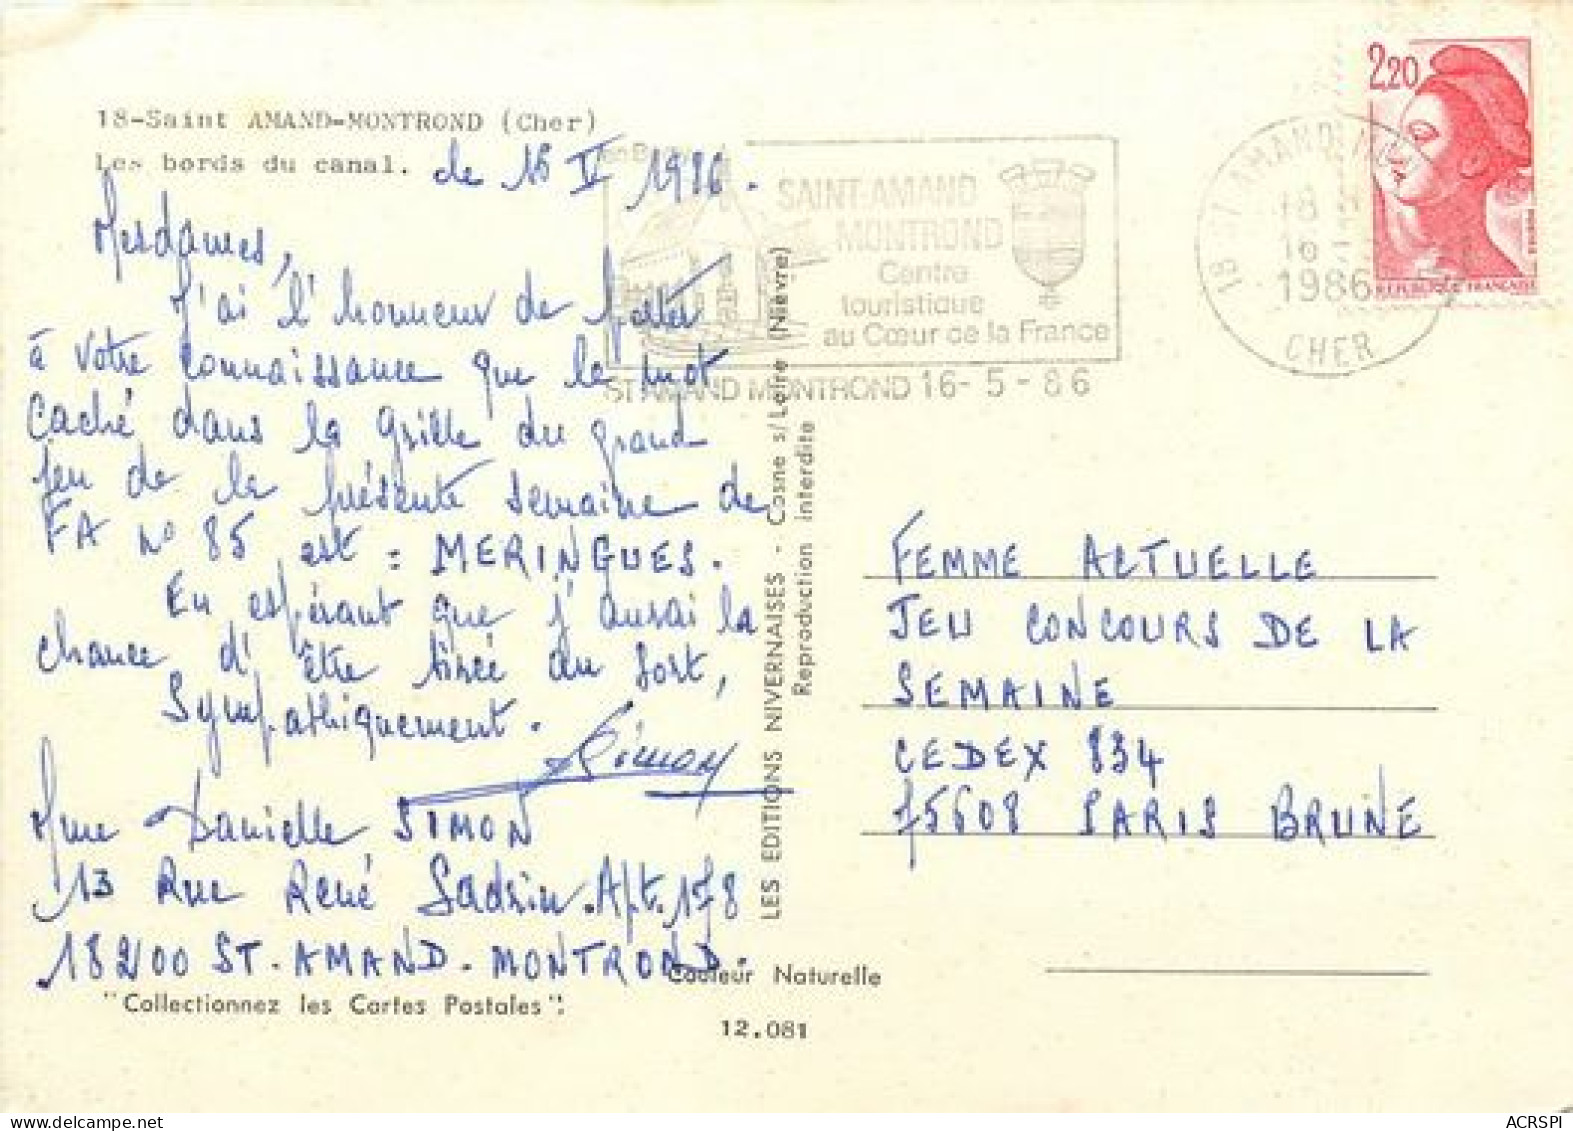 18-Saint AMAND-MONTROND (Cher)
Les bords du canal.
de 16 V 1986.
Mesdames,
J'ai l'honneur de porter
à votre connaissance que le mot
caché dans la grille du grand
jeu de la présente semaine de
FA n° 85 est : MERINGUES.
En espérant que j'aurai la
chance d'être tirée au sort,
Sympathiquement.
Simon
Mme Danielle SIMON
13 Rue René Sadrin. Apt. 178
18200 ST-AMAND-MONTROND.
"Collectionnez les Cartes Postales":
Couleur Naturelle
12.081
LES EDITIONS NIVERNAISES - Cosne s/Loire (Nièvre)
Reproduction Interdite
SAINT-AMAND
MONTROND
Centre
touristique
au Cœur de la France
ST AMAND MONTROND 16-5-86
18 ST AMAND
18 H
16
1986
CHER
2,20
REPUBLIQUE FRANÇAISE
FEMME ACTUELLE
JEU CONCOURS DE LA
SEMAINE
CEDEX 834
75608 PARIS BRUNE
ACRSPI